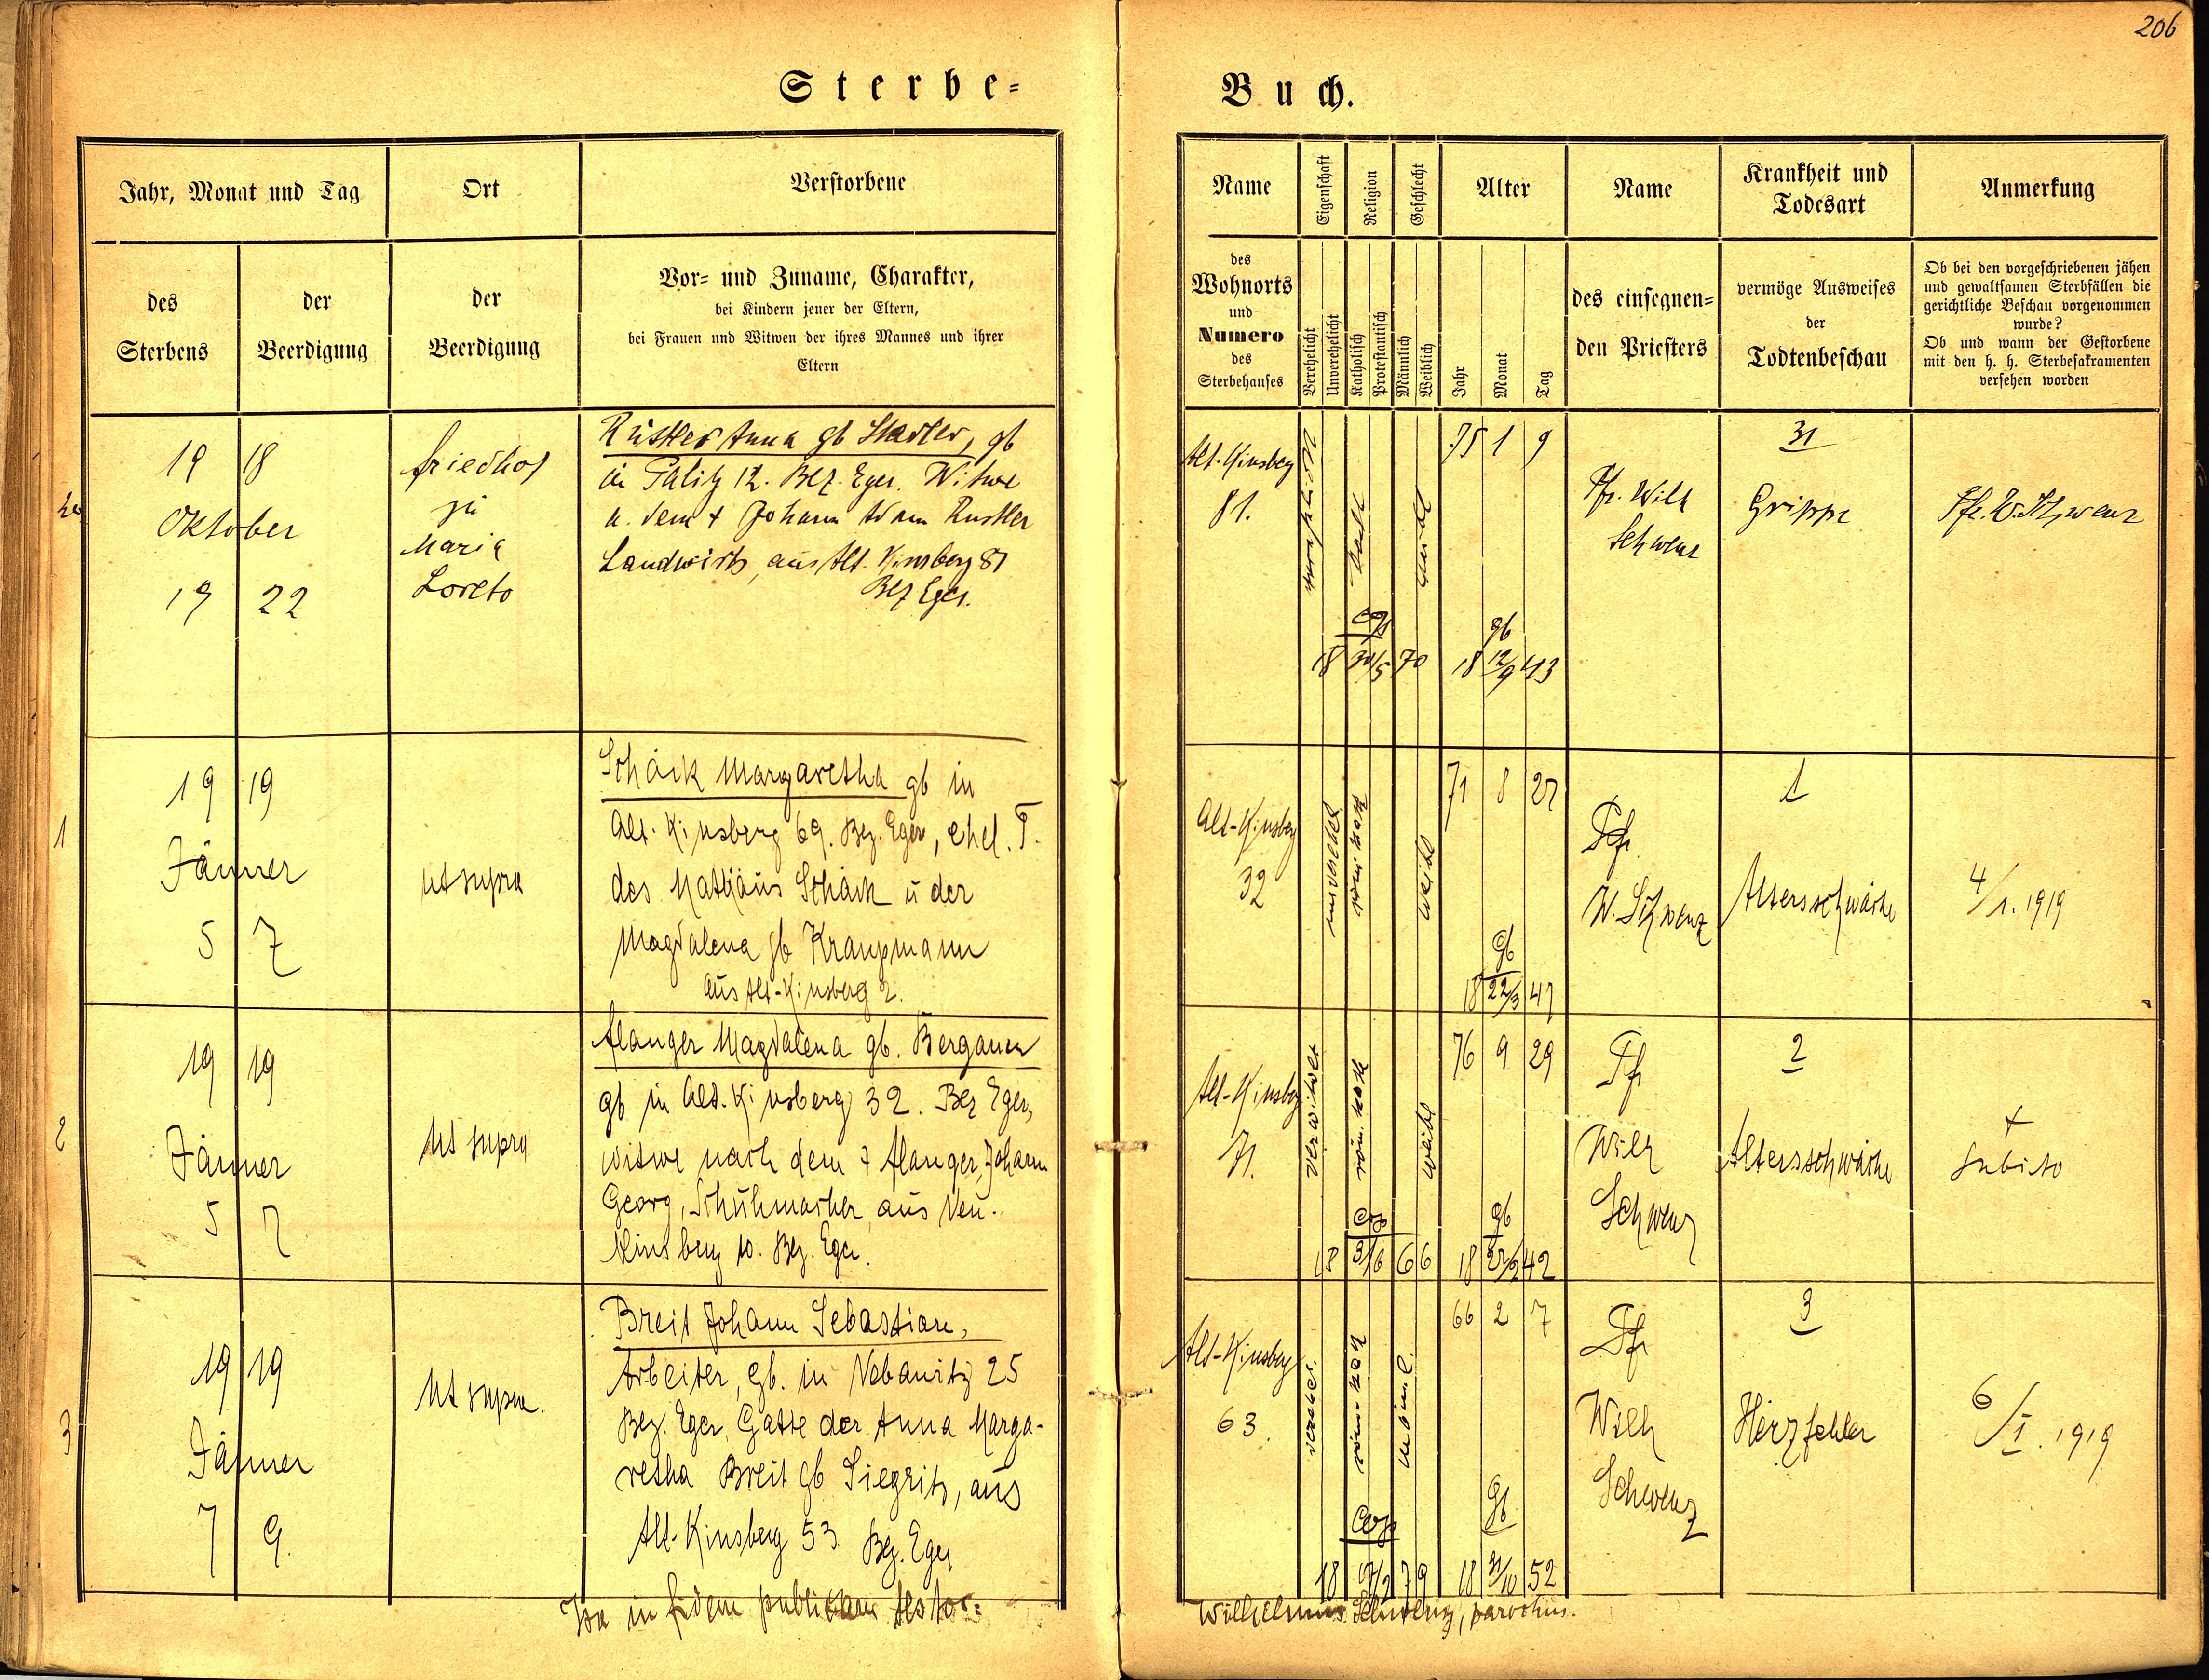 206
Sterbe-
Buch.
Jahr, Monat und Tag
Ort
Verstorbene
des
Sterbens
der
Beerdigung
der
Beerdigung
Vor- und Zuname, Charakter,
bei Kindern jener der Eltern,
bei Frauen und Witwen der ihres Mannes und ihrer
Eltern
Name
Eigenschaft
Religion
Geschlecht
Alter
Name
Krankheit und
Todesart
Anmerkung
des
Wohnorts
und
Numero
des
Sterbehauses
Verehelicht
Unverehelicht
Katholisch
Protestantisch
Männlich
Weiblich
Jahr
Monat
Tag
des einsegnen-
den Priesters
vermöge Ausweises
der
Todtenbeschau
Ob bei den vorgeschriebenen jähen
und gewaltsamen Sterbfällen die
gerichtliche Beschau vorgenommen
wurde?
Ob und wann der Gestorbene
mit den h. h. Sterbesakramenten
versehen worden
19 18
Oktober
19 22
Friedhof
zu
Maria
Loreto
Rustler Anna gb Stadler, gb
in Palitz 12. Bez. Eger. Witwe
n. dem + Johann Adam Rustler
Landwirts, aus Alt-Kinsberg 81
Bez Eger.
Alt-Kinsberg
81.
75 1 9
cop
18 30/5 70
gb
18 12/9 43
Pfr. Wilh
Schwenz
31
Grippe
Pfr. W. Schwenz
1
19 19
Jänner
5 7
ut supra
Schaik Margaretha gb in
Alt-Kinsberg 69. Bez. Eger, ehel. T.
des Mathäus Schaik u der
Magdalena gb Kraupmann
aus Alt-Kinsberg 2.
Alt-Kinsberg
32
unverehel
röm. kath
weibl
71 8 27
gb
18 22/3 47
Pfr.
W. Schwenz
1
Altersschwäche
4/1. 1919
2
19 19
Jänner
5 7
Ut supra
Flanger Magdalena gb. Bergauer
gb in Alt-Kinsberg 32. Bez Eger,
witwe nach dem + Flanger Johann
Georg, Schuhmacher aus Neu-
Kinsberg 10. Bez. Eger.
Alt-Kinsberg
71.
verwitwet
röm. kath
weibl
76 9 29
cop
18 3/6 66
gb
18 42
Pfr
Wilh
Schwenz
2
Altersschwäche
+
subito
3
19 19
Jänner
7 9.
Ut supra.
Breit Johann Sebastian,
Arbeiter, gb. in Nebanitz 25
Bez. Eger, Gatte der Anna Marga-
retha Breit gb Siegritz, aus
Alt-Kinsberg 53. Bez. Eger
Alt-Kinsberg
63.
verehel.
röm. kath
männl.
66 2 7
cop
18 79
gb
18 31/10 52
Pfr
Wilh
Schwenz
3
Herzfehler
6/I. 1919
Ita in fidem publicam testor:
Wilhelmus Schwenz, parochus.